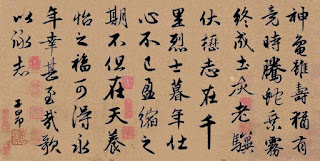 神龜雖壽猶有
竟時騰蛇乘霧
終成土灰老驥
伏櫪志在千
里烈士暮年壮
心不已盈縮之
期不但在天養
怡之福可得永
年幸甚至哉歌
以詠志
子昂